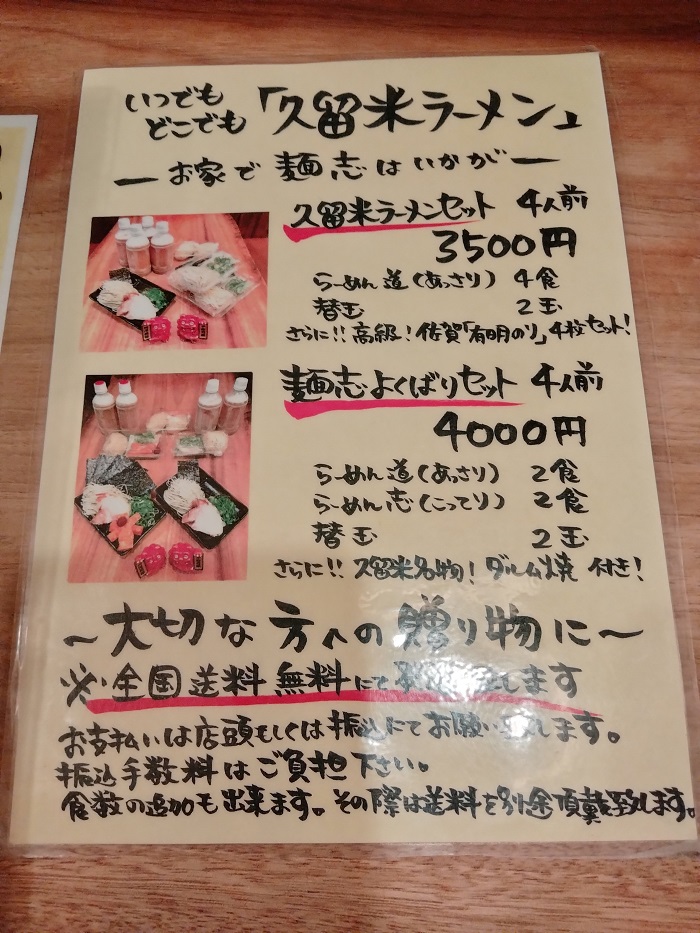 いつでも
どこでも
「久留米ラーメン」
ーお家で 麺志はいかがー
久留米ラーメンセット 4人前
3500円
らーめん道(あっさり) 4食
替玉 2玉
さらに!!高級!佐賀「有明のり」4枚セット!
麺志よくばりセット 4人前
4000円
らーめん道(あっさり) 2食
らーめん志(こってり) 2食
替玉 2玉
さらに!!久留米名物!ダルム焼 付き!
〜大切な方への贈り物に〜
※全国送料無料にて します
お支払いは店頭もしくは振込にてお願い致します。
振込手数料はご負担下さい。
食数の追加も出来ます。その際は送料を別途頂戴致します。